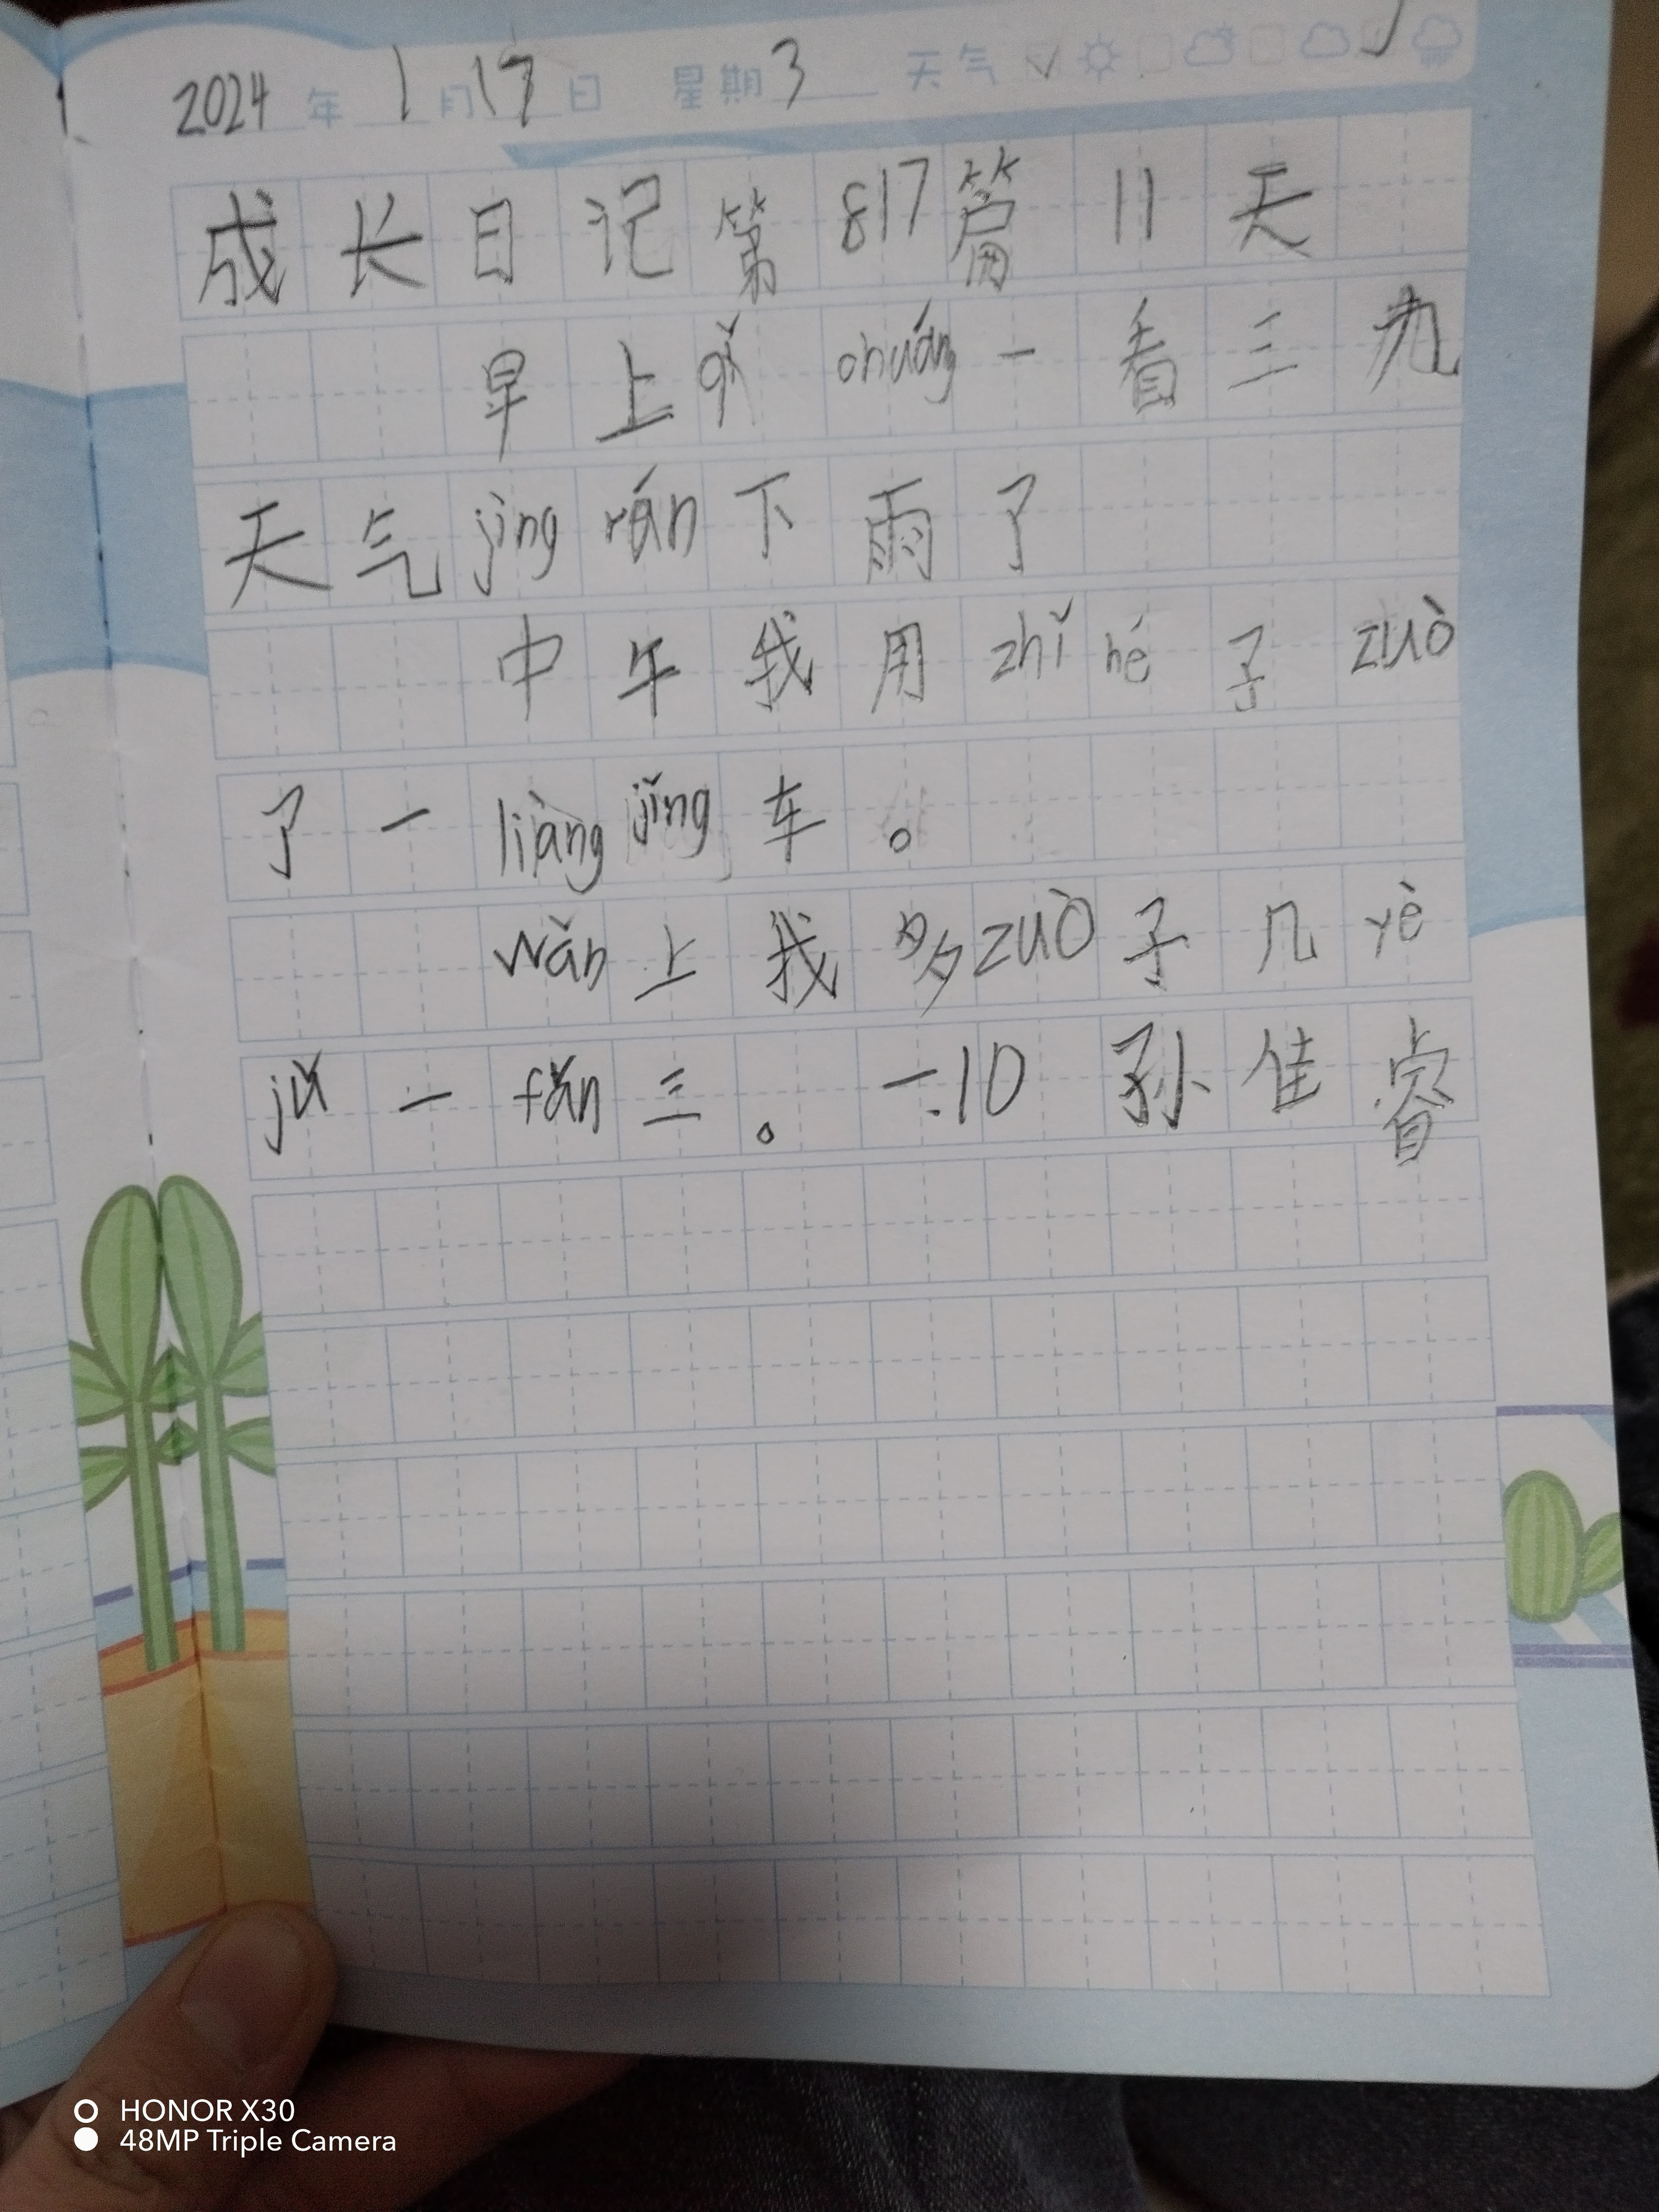 2024年1月17日 星期3 天气
成长日记第817篇11天
早上qǐ chuáng一看三九
天气jìng rán下雨了
中午我用zhǐ hé子zuò
了一liàng jǐng车。
wǎn上我多zuò子几yè
jǔ一fǎn三。一.10孙佳睿
HONOR X30
48MP Triple Camera